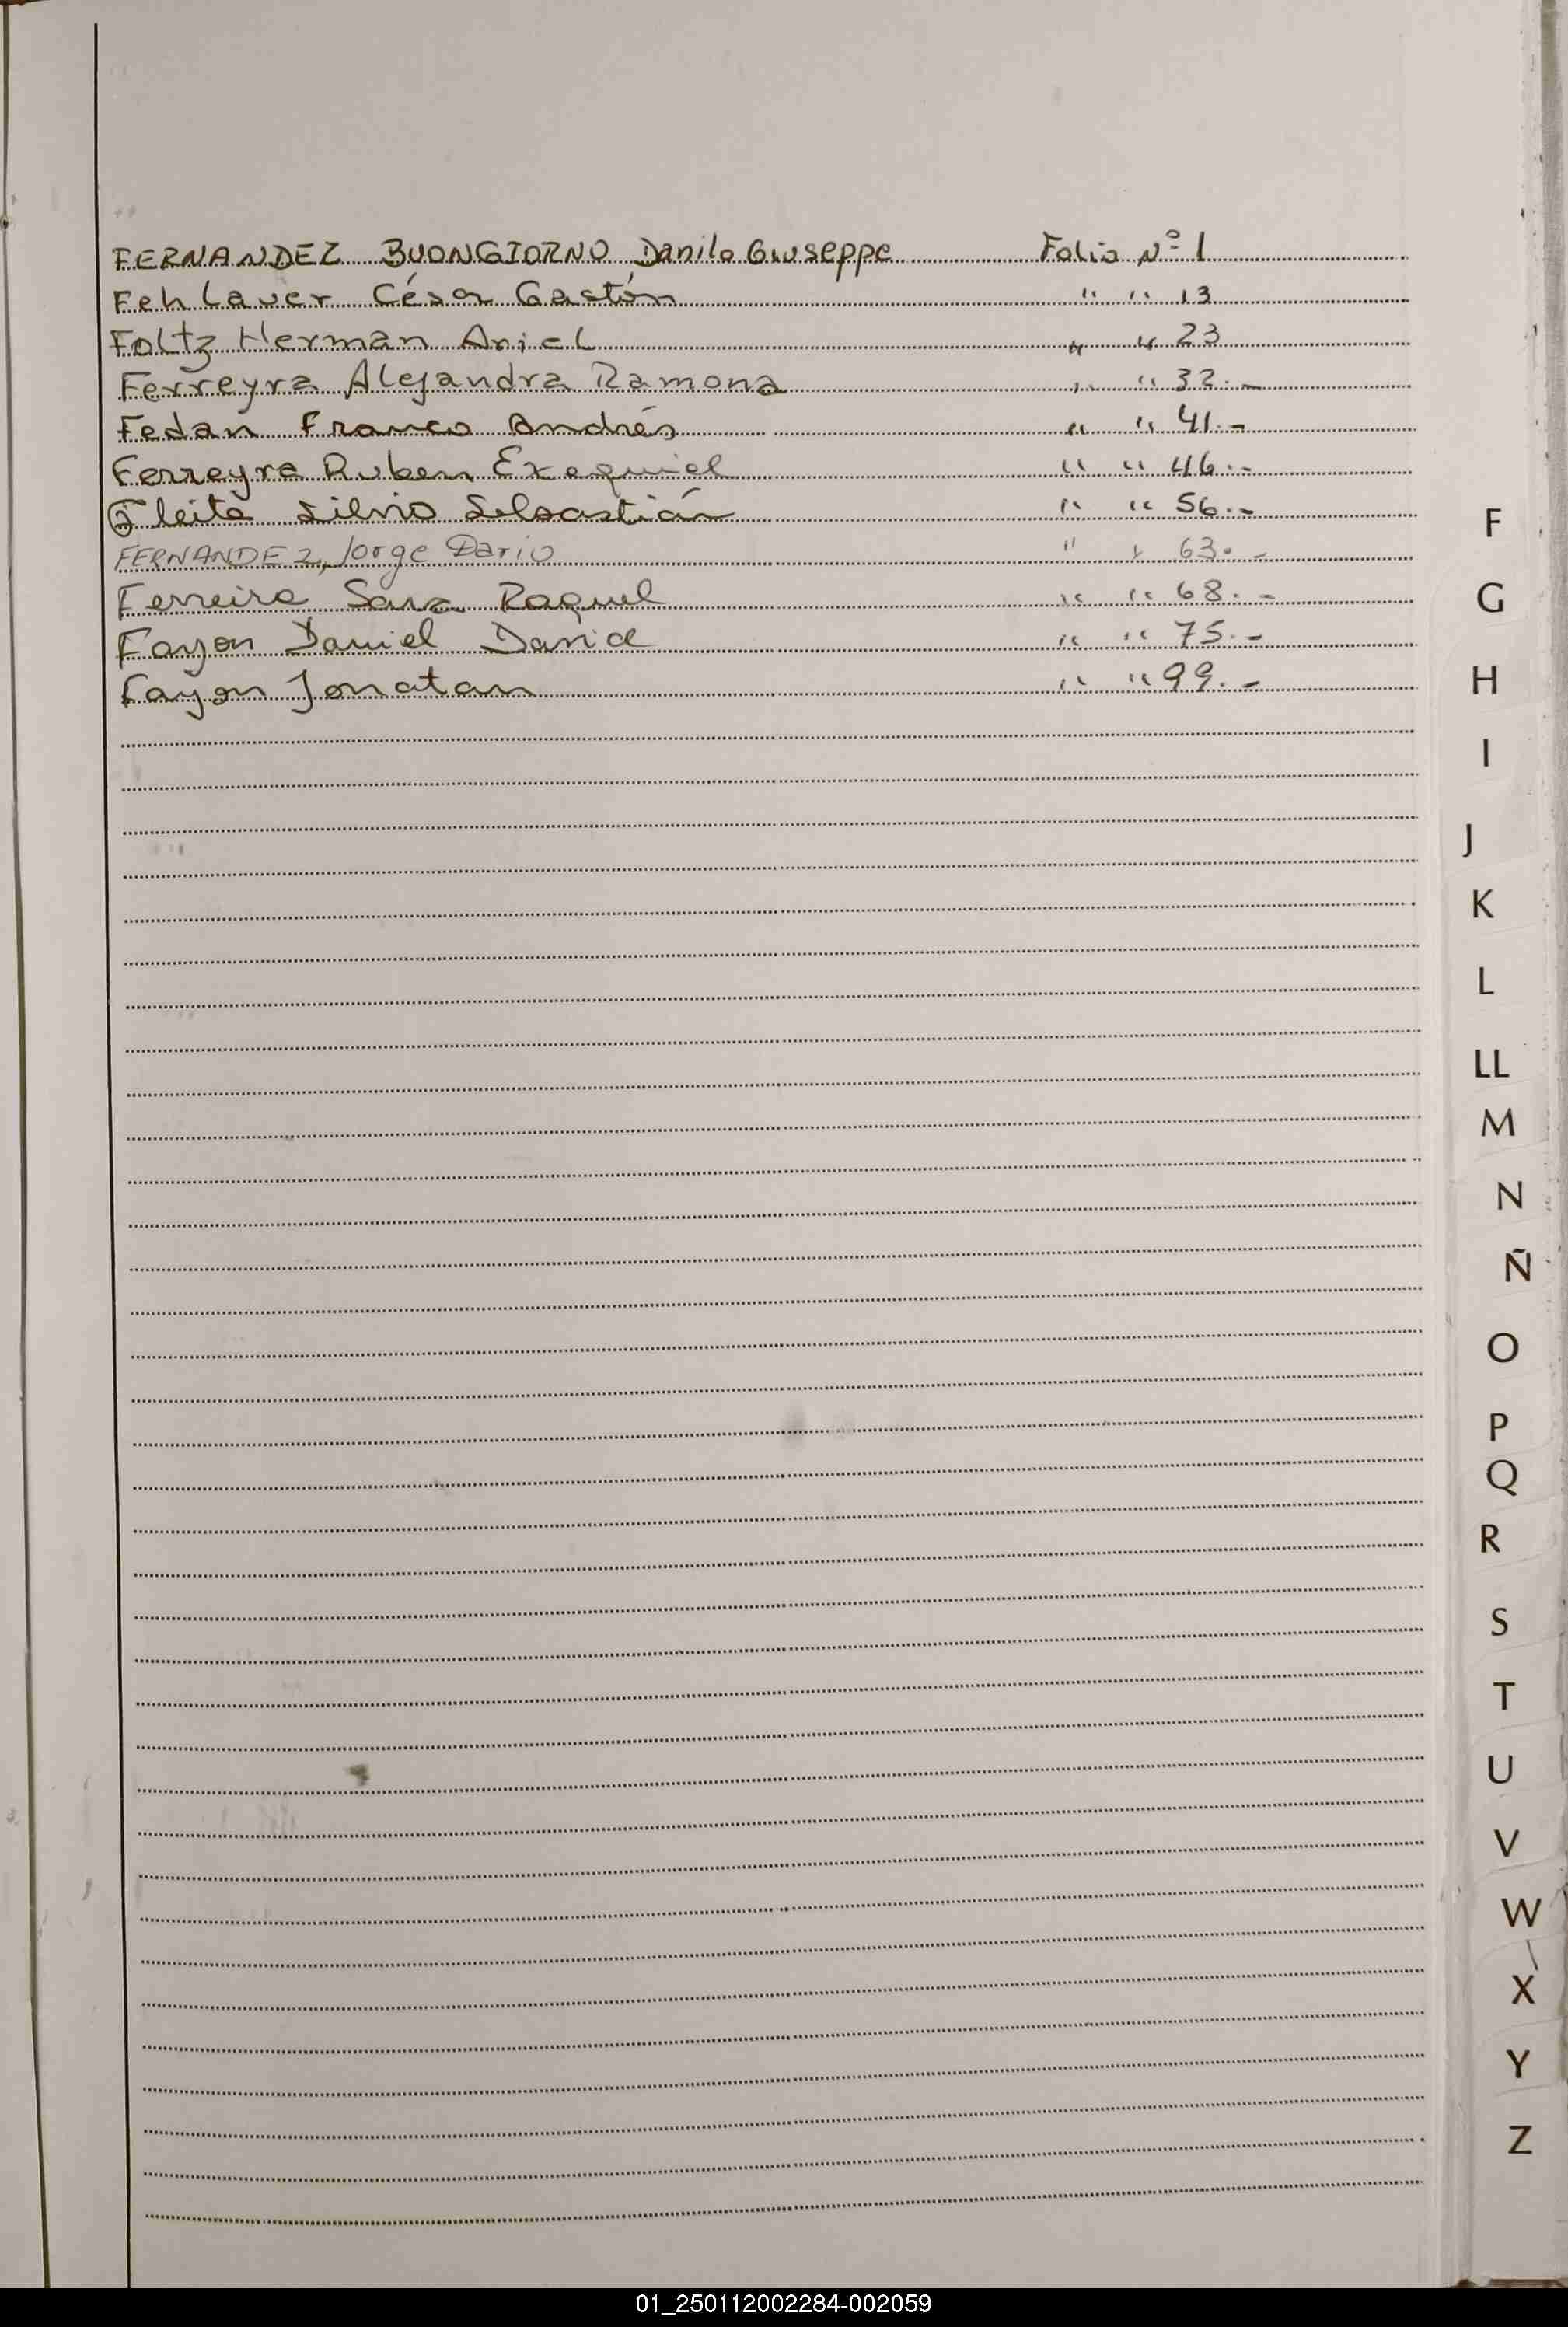 FERNANDEZ BUONGIORNO Danilo Giuseppe Folio Nº 1
Fehlauer César Gastón " " 13
Foltz Herman Ariel " " 23
Ferreyra Alejandra Ramona " " 32.-
Fedan Franco Andrés " " 41.-
Ferreyra Ruben Exequiel " " 46.-
Fleita Silvio Sebastián " " 56.-
FERNANDEZ, Jorge Dario " " 63.-
Ferreira Sara Raquel " " 68.-
Fayon Daniel David " " 75.-
Fayon Jonatan " " 99.-
F
G
H
I
J
K
L
LL
M
N
Ñ
O
P
Q
R
S
T
U
V
W
X
Y
Z
01_250112002284-002059